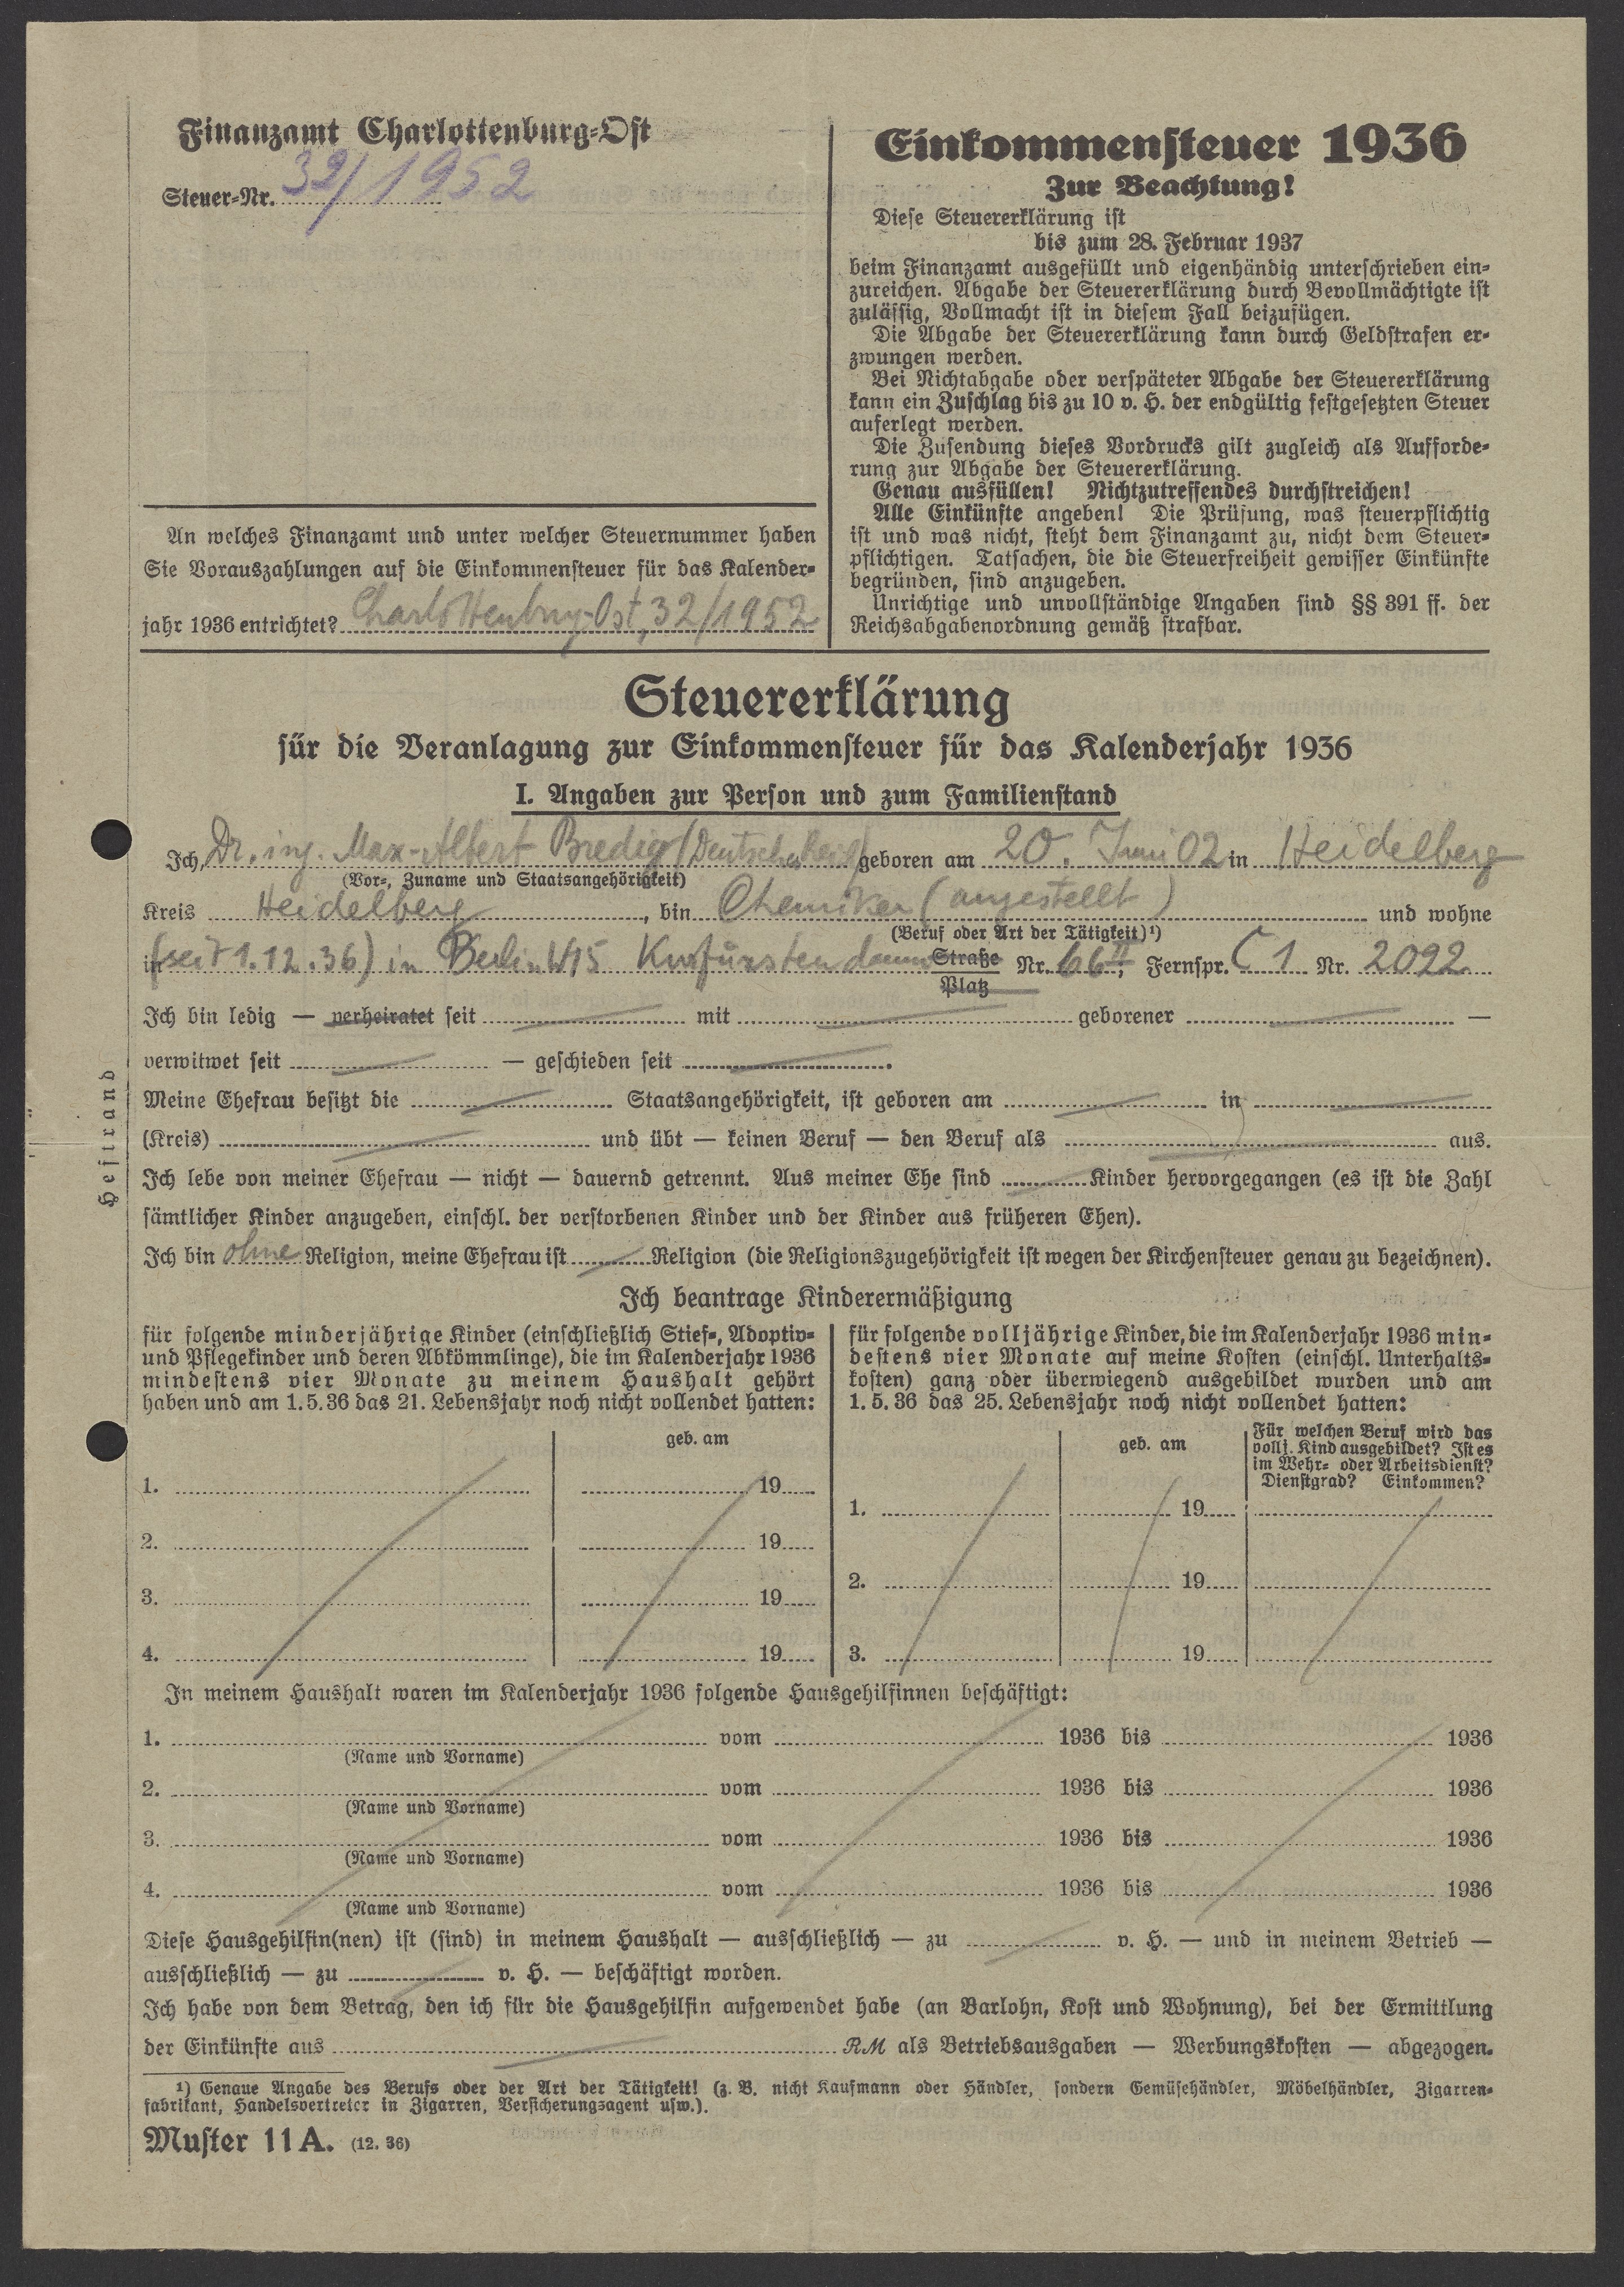 Finanzamt Charlottenburg-Ost
Steuer-Nr. 32/1952
Einkommensteuer 1936
Zur Beachtung!
Diese Steuererklärung ist
bis zum 28. Februar 1937
beim Finanzamt ausgefüllt und eigenhändig unterschrieben ein-
zureichen. Abgabe der Steuererklärung durch Bevollmächtigte ist
zulässig, Vollmacht ist in diesem Fall beizufügen.
Die Abgabe der Steuererklärung kann durch Geldstrafen er-
zwungen werden.
Bei Nichtabgabe oder verspäteter Abgabe der Steuererklärung
kann ein Zuschlag bis zu 10 v. H. der endgültig festgesetzten Steuer
auferlegt werden.
Die Zusendung dieses Vordrucks gilt zugleich als Aufforde-
rung zur Abgabe der Steuererklärung.
Genau ausfüllen! Nichtzutreffendes durchstreichen!
Alle Einkünfte angeben! Die Prüfung, was steuerpflichtig
ist und was nicht, steht dem Finanzamt zu, nicht dem Steuer-
pflichtigen. Tatsachen, die die Steuerfreiheit gewisser Einkünfte
begründen, sind anzugeben.
Unrichtige und unvollständige Angaben sind §§ 391 ff. der
Reichsabgabenordnung gemäß strafbar.
An welches Finanzamt und unter welcher Steuernummer haben
Sie Vorauszahlungen auf die Einkommensteuer für das Kalender-
jahr 1936 entrichtet? Charlottenburg-Ost, 32/1952
Steuererklärung
für die Veranlagung zur Einkommensteuer für das Kalenderjahr 1936
I. Angaben zur Person und zum Familienstand
Ich, Dr. ing. Max-Albert Bredig (Deutsches Reich) geboren am 20. Juni 02 in Heidelberg
(Vor-, Zuname und Staatsangehörigkeit)
Kreis Heidelberg, bin Chemiker (angestellt) und wohne
(Beruf oder Art der Tätigkeit)¹)
in (seit 1.12.36) in Berlin W15 Kurfürstendamm Straße Nr. 66 II, Fernspr. C 1 Nr. 2092
Platz
Ich bin ledig — verheiratet seit mit geborener —
verwitwet seit — geschieden seit .
Meine Ehefrau besitzt die Staatsangehörigkeit, ist geboren am in
(Kreis) und übt — keinen Beruf — den Beruf als aus.
Ich lebe von meiner Ehefrau — nicht — dauernd getrennt. Aus meiner Ehe sind Kinder hervorgegangen (es ist die Zahl
sämtlicher Kinder anzugeben, einschl. der verstorbenen Kinder und der Kinder aus früheren Ehen).
Ich bin ohne Religion, meine Ehefrau ist Religion (die Religionszugehörigkeit ist wegen der Kirchensteuer genau zu bezeichnen).
Ich beantrage Kinderermäßigung
für folgende minderjährige Kinder (einschließlich Stief-, Adoptiv-
und Pflegekinder und deren Abkömmlinge), die im Kalenderjahr 1936
mindestens vier Monate zu meinem Haushalt gehört
haben und am 1. 5. 36 das 21. Lebensjahr noch nicht vollendet hatten:
geb. am
1. 19
2. 19
3. 19
4. 19
für folgende volljährige Kinder, die im Kalenderjahr 1936 min-
destens vier Monate auf meine Kosten (einschl. Unterhalts-
kosten) ganz oder überwiegend ausgebildet wurden und am
1. 5. 36 das 25. Lebensjahr noch nicht vollendet hatten:
geb. am
Für welchen Beruf wird das
vollj. Kind ausgebildet? Ist es
im Wehr- oder Arbeitsdienst?
Dienstgrad? Einkommen?
1. 19
2. 19
3. 19
In meinem Haushalt waren im Kalenderjahr 1936 folgende Hausgehilfinnen beschäftigt:
1. vom 1936 bis 1936
(Name und Vorname)
2. vom 1936 bis 1936
(Name und Vorname)
3. vom 1936 bis 1936
(Name und Vorname)
4. vom 1936 bis 1936
(Name und Vorname)
Diese Hausgehilfin(nen) ist (sind) in meinem Haushalt — ausschließlich — zu v. H. — und in meinem Betrieb —
ausschließlich — zu v. H. — beschäftigt worden.
Ich habe von dem Betrag, den ich für die Hausgehilfin aufgewendet habe (an Barlohn, Kost und Wohnung), bei der Ermittlung
der Einkünfte aus RM als Betriebsausgaben — Werbungskosten — abgezogen.
¹) Genaue Angabe des Berufs oder der Art der Tätigkeit! (z. B. nicht Kaufmann oder Händler, sondern Gemüsehändler, Möbelhändler, Zigarren-
fabrikant, Handelsvertreter in Zigarren, Versicherungsagent usw.).
Muster 11 A. (12. 36)
Heftrand